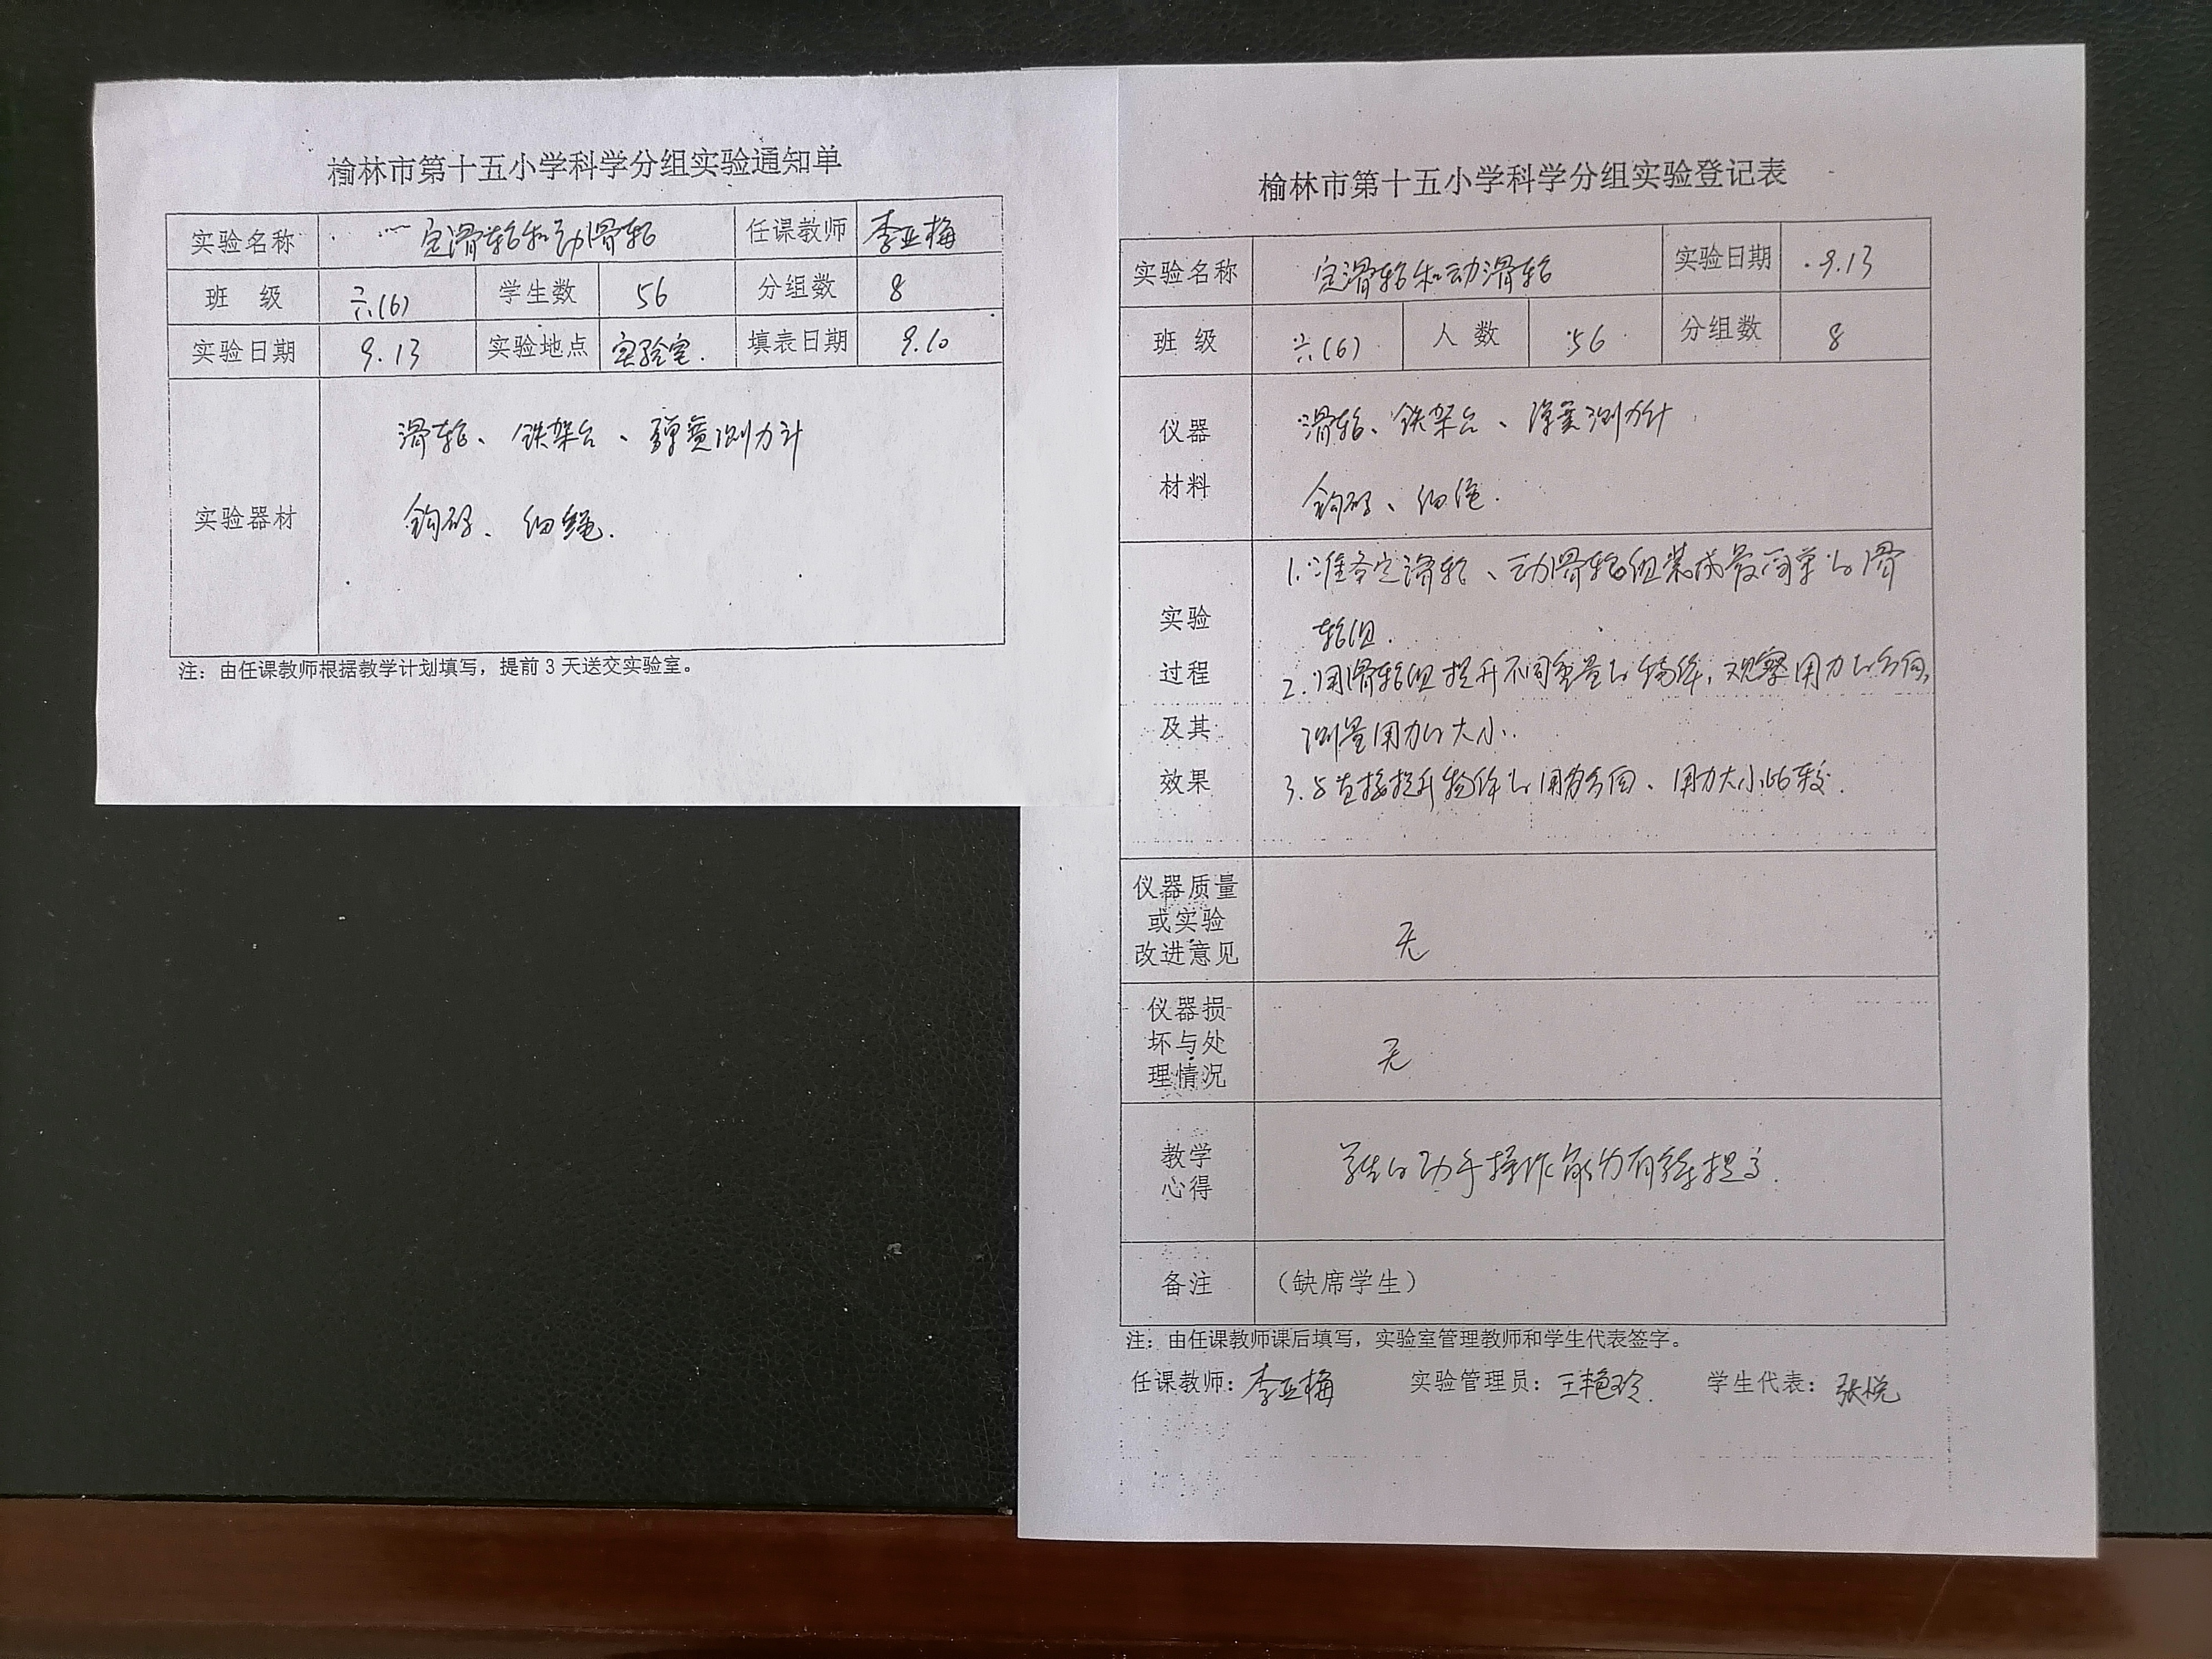 榆林市第十五小学科学分组实验通知单
实验名称 定滑轮和动滑轮 任课教师 李亚梅
班 级 六(6) 学生数 56 分组数 8
实验日期 9.13 实验地点 实验室. 填表日期 9.10
实验器材
滑轮、铁架台、弹簧测力计
钩码、细绳.
注：由任课教师根据教学计划填写，提前3天送交实验室。
榆林市第十五小学科学分组实验登记表
实验名称 定滑轮和动滑轮 实验日期 9.13
班 级 六(6) 人 数 56 分组数 8
仪器
材料
滑轮、铁架台、弹簧测力计
钩码、细绳.
实验
过程
及其
效果
1.准备定滑轮、动滑轮组装成最简单的滑
轮组.
2.用滑轮组提升不同重量的物体,观察用力的方向,
测量用力的大小.
3.与直接提升物体的用力方向、用力大小比较.
仪器质量
或实验
改进意见
无
仪器损
坏与处
理情况
无
教学
心得
学生的动手操作能力有待提高.
备注 （缺席学生）
注：由任课教师课后填写，实验室管理教师和学生代表签字。
任课教师：李亚梅 实验管理员：王艳玲. 学生代表：张悦